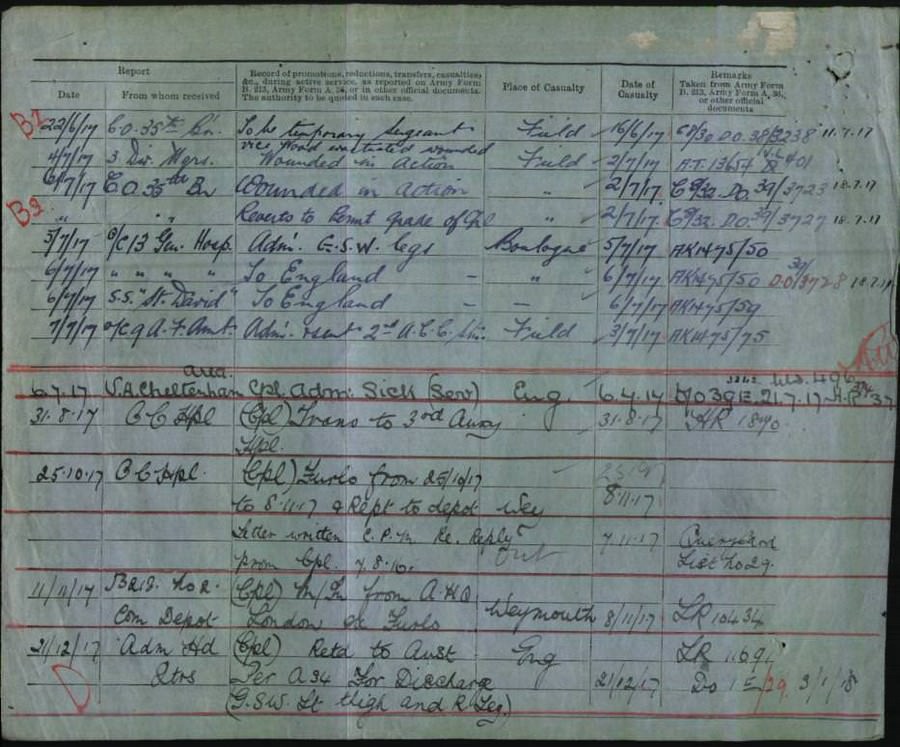 Report
Record of promotions, reductions, transfers, casualties,
&c., during active service, as reported on Army Form
B. 213, Army Form A. 36, or in other official documents.
The authority to be quoted in each case.
Place of Casualty
Date of
Casualty
Remarks
Taken from Army Form
B. 213, Army Form A. 36,
or other official
documents
Date
From whom received
22/6/17 C.O. 35th Bn. To be temporary Sergeant Field 16/6/17 11.7.17
vice Wood wounded
4/7/17 3 Div. Wounded in Action Field 2/7/17 A.T. 13654
6/7/17 C.O. 35th Bn Wounded in action " 2/7/17 D.O. 39/3723 18.7.17
B2
" " Reverts to Permt grade of Cpl " 2/7/17 D.O. 39/3727 18.7.17
5/7/17 O/C 13 Gen. Hosp. Adm. G.S.W. legs Boulogne 5/7/17 AK1475/50
6/7/17 " " " " To England – " 6/7/17 AK1475/50 D.O. 39/3728 18.7.17
6/7/17 S.S. "St. David" To England – – 6/7/17 AK1475/59
7/7/17 O/C 9 A.F. Amb. Adm. 2nd A.C.C. Stn. Field 3/7/17 AK1475/75
area.
6.7.17 V.A. Cheltenham Cpl. Adm. Sick (Sev) Eng. 21.7.17
31.8.17 Hpl (Cpl) Trans to 3rd Auxy 31.8.17 HR 1840
Hpl.
25.10.17 Hpl. (Cpl) Furlo from 25/10/17
to 8.11.17 & Rept to depot Wey 8.11.17
Letter written Re. Reply 7.11.17
from Cpl. List No 29.
11/11/17 (Cpl) M/In from A.H.Q
Com Depot London ex Furlo Weymouth 8/11/17 LR 10434
21/12/17 Adm Hd (Cpl) Retd to Aust Eng LR 11691
Qtrs Per A34 For Discharge 21/12/17 Do 3/1/18
(G.S.W. Lt thigh and R Leg)